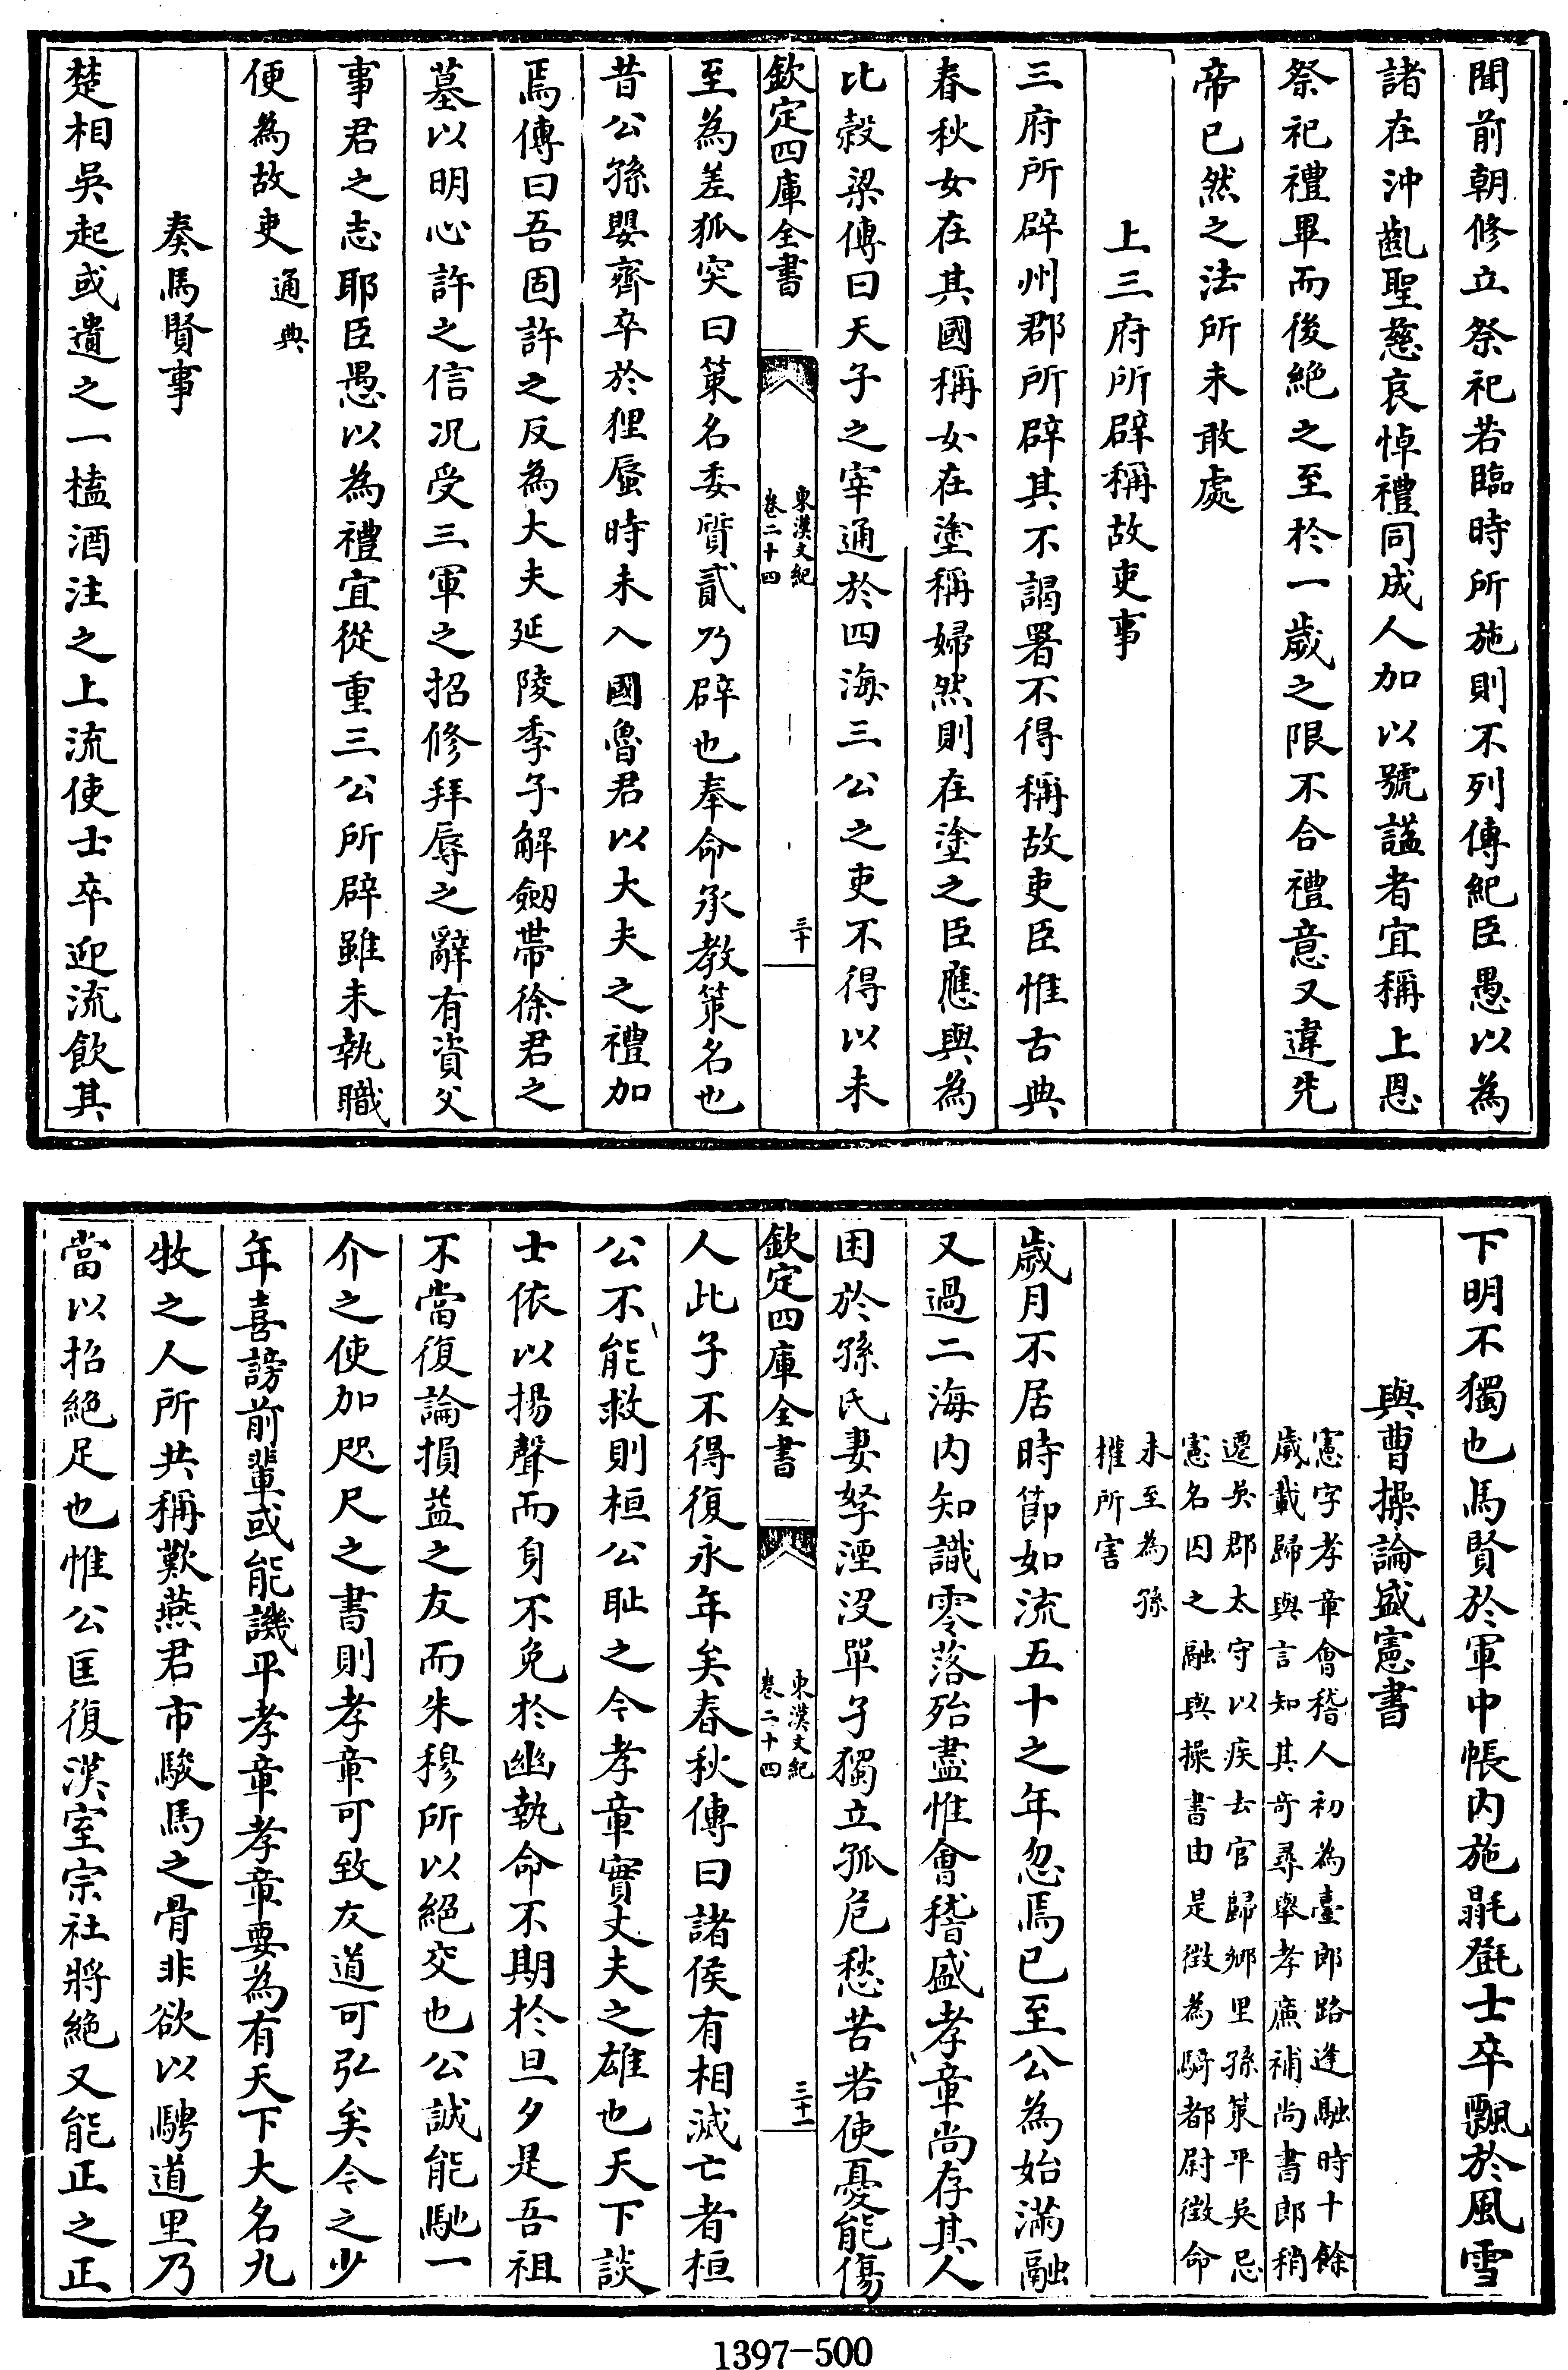 聞前朝修立祭祀若臨時所施則不列傳紀臣愚以為
諸在沖齓聖慈哀悼禮同成人加以號諡者宜稱上恩
祭祀禮畢而後絶之至於一歲之限不合禮意又違先
帝已然之法所未敢處
上三府所辟稱故吏事
三府所辟州郡所辟其不謁署不得稱故吏臣惟古典
春秋女在其國稱女在塗稱婦然則在塗之臣應與為
比穀梁傳曰天子之宰通於四海三公之吏不得以未
欽定四庫全書
東漢文紀
卷二十四
三十
至為差狐突曰策名委質貳乃辟也奉命承教策名也
昔公孫嬰齊卒於狸蜃時未入國魯君以大夫之禮加
焉傳曰吾固許之反為大夫延陵季子解劒帶徐君之
墓以明心許之信况受三軍之招修拜辱之辭有資父
事君之志耶臣愚以為禮宜從重三公所辟雖未執職
便為故吏 通典
奏馬賢事
楚相吳起或遺之一榼酒注之上流使士卒迎流飲其
下明不獨也馬賢於軍中帳内施氍㲪士卒飄於風雪
與曹操論盛憲書
憲字孝章會稽人初為臺郎路逢融時十餘
歲載歸與言知其奇尋舉孝廉補尚書郎稍
遷吳郡太守以疾去官歸鄉里孫策平吳忌
憲名囚之融與操書由是徵為騎都尉徵命
未至為孫
權所害
歲月不居時節如流五十之年忽焉已至公為始滿融
又過二海内知識零落殆盡惟會稽盛孝章尚存其人
困於孫氏妻孥湮沒單孑獨立孤危愁苦若使憂能傷
欽定四庫全書
東漢文紀
卷二十四
三十一
人此子不得復永年矣春秋傳曰諸侯有相滅亡者桓
公不能救則桓公耻之今孝章實丈夫之雄也天下談
士依以揚聲而身不免於幽執命不期於旦夕是吾祖
不當復論損益之友而朱穆所以絕交也公誠能馳一
介之使加咫尺之書則孝章可致友道可弘矣今之少
年喜謗前輩或能譏平孝章孝章要為有天下大名九
牧之人所共稱歎燕君市駿馬之骨非欲以騁道里乃
當以招絕足也惟公匡復漢室宗社將絕又能正之正
1397-500